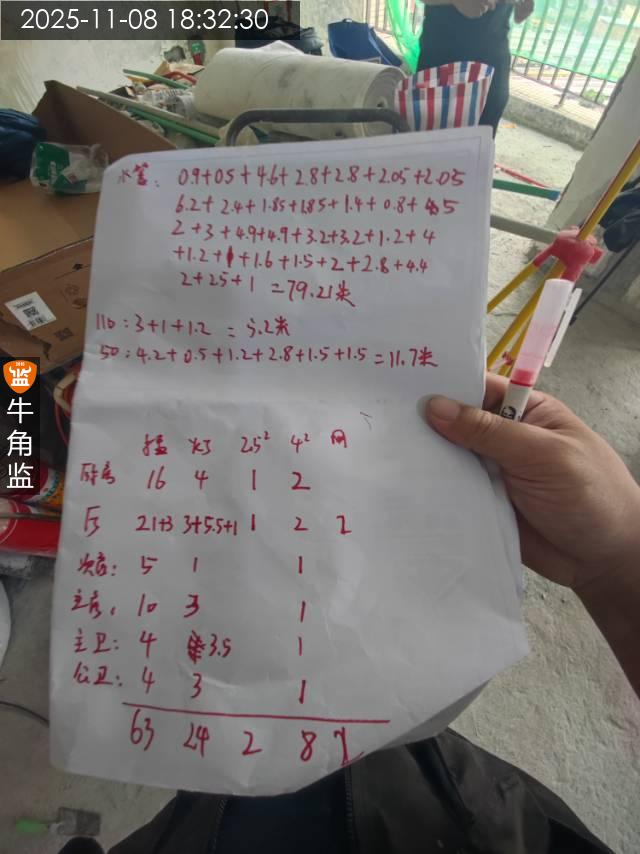 2025-11-08 18:32:30
水管: 0.9+0.5+4.6+2.8+2.8+2.05+2.05
6.2+2.4+1.85+1.85+1.4+0.8+5
2+3+4.9+4.9+3.2+3.2+1.2+4
+1.2+1+1.6+1.5+2+2.8+4.4
2+2.5+1=79.21米
110:3+1+1.2=5.2米
50:4.2+0.5+1.2+2.8+1.5+1.5=11.7米
插 灯 2.5² 4² 网
厨房 16 4 1 2
厅 21+3 3+5.5+1 1 2 2
次房: 5 1 1
主房: 10 3 1
主卫: 4 3.5 1
公卫: 4 3 1
63 24 2 8 2
牛角监